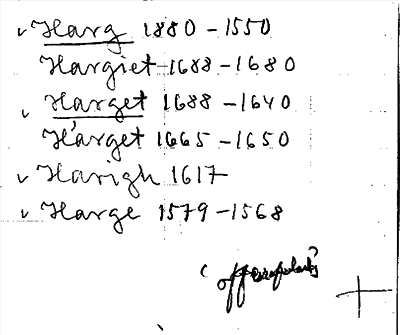 Harg 1880-1550
Hargiet 1688-1680
Harget 1688-1640
Harget 1665-1650
Harigh 1617
Harge 1579-1568